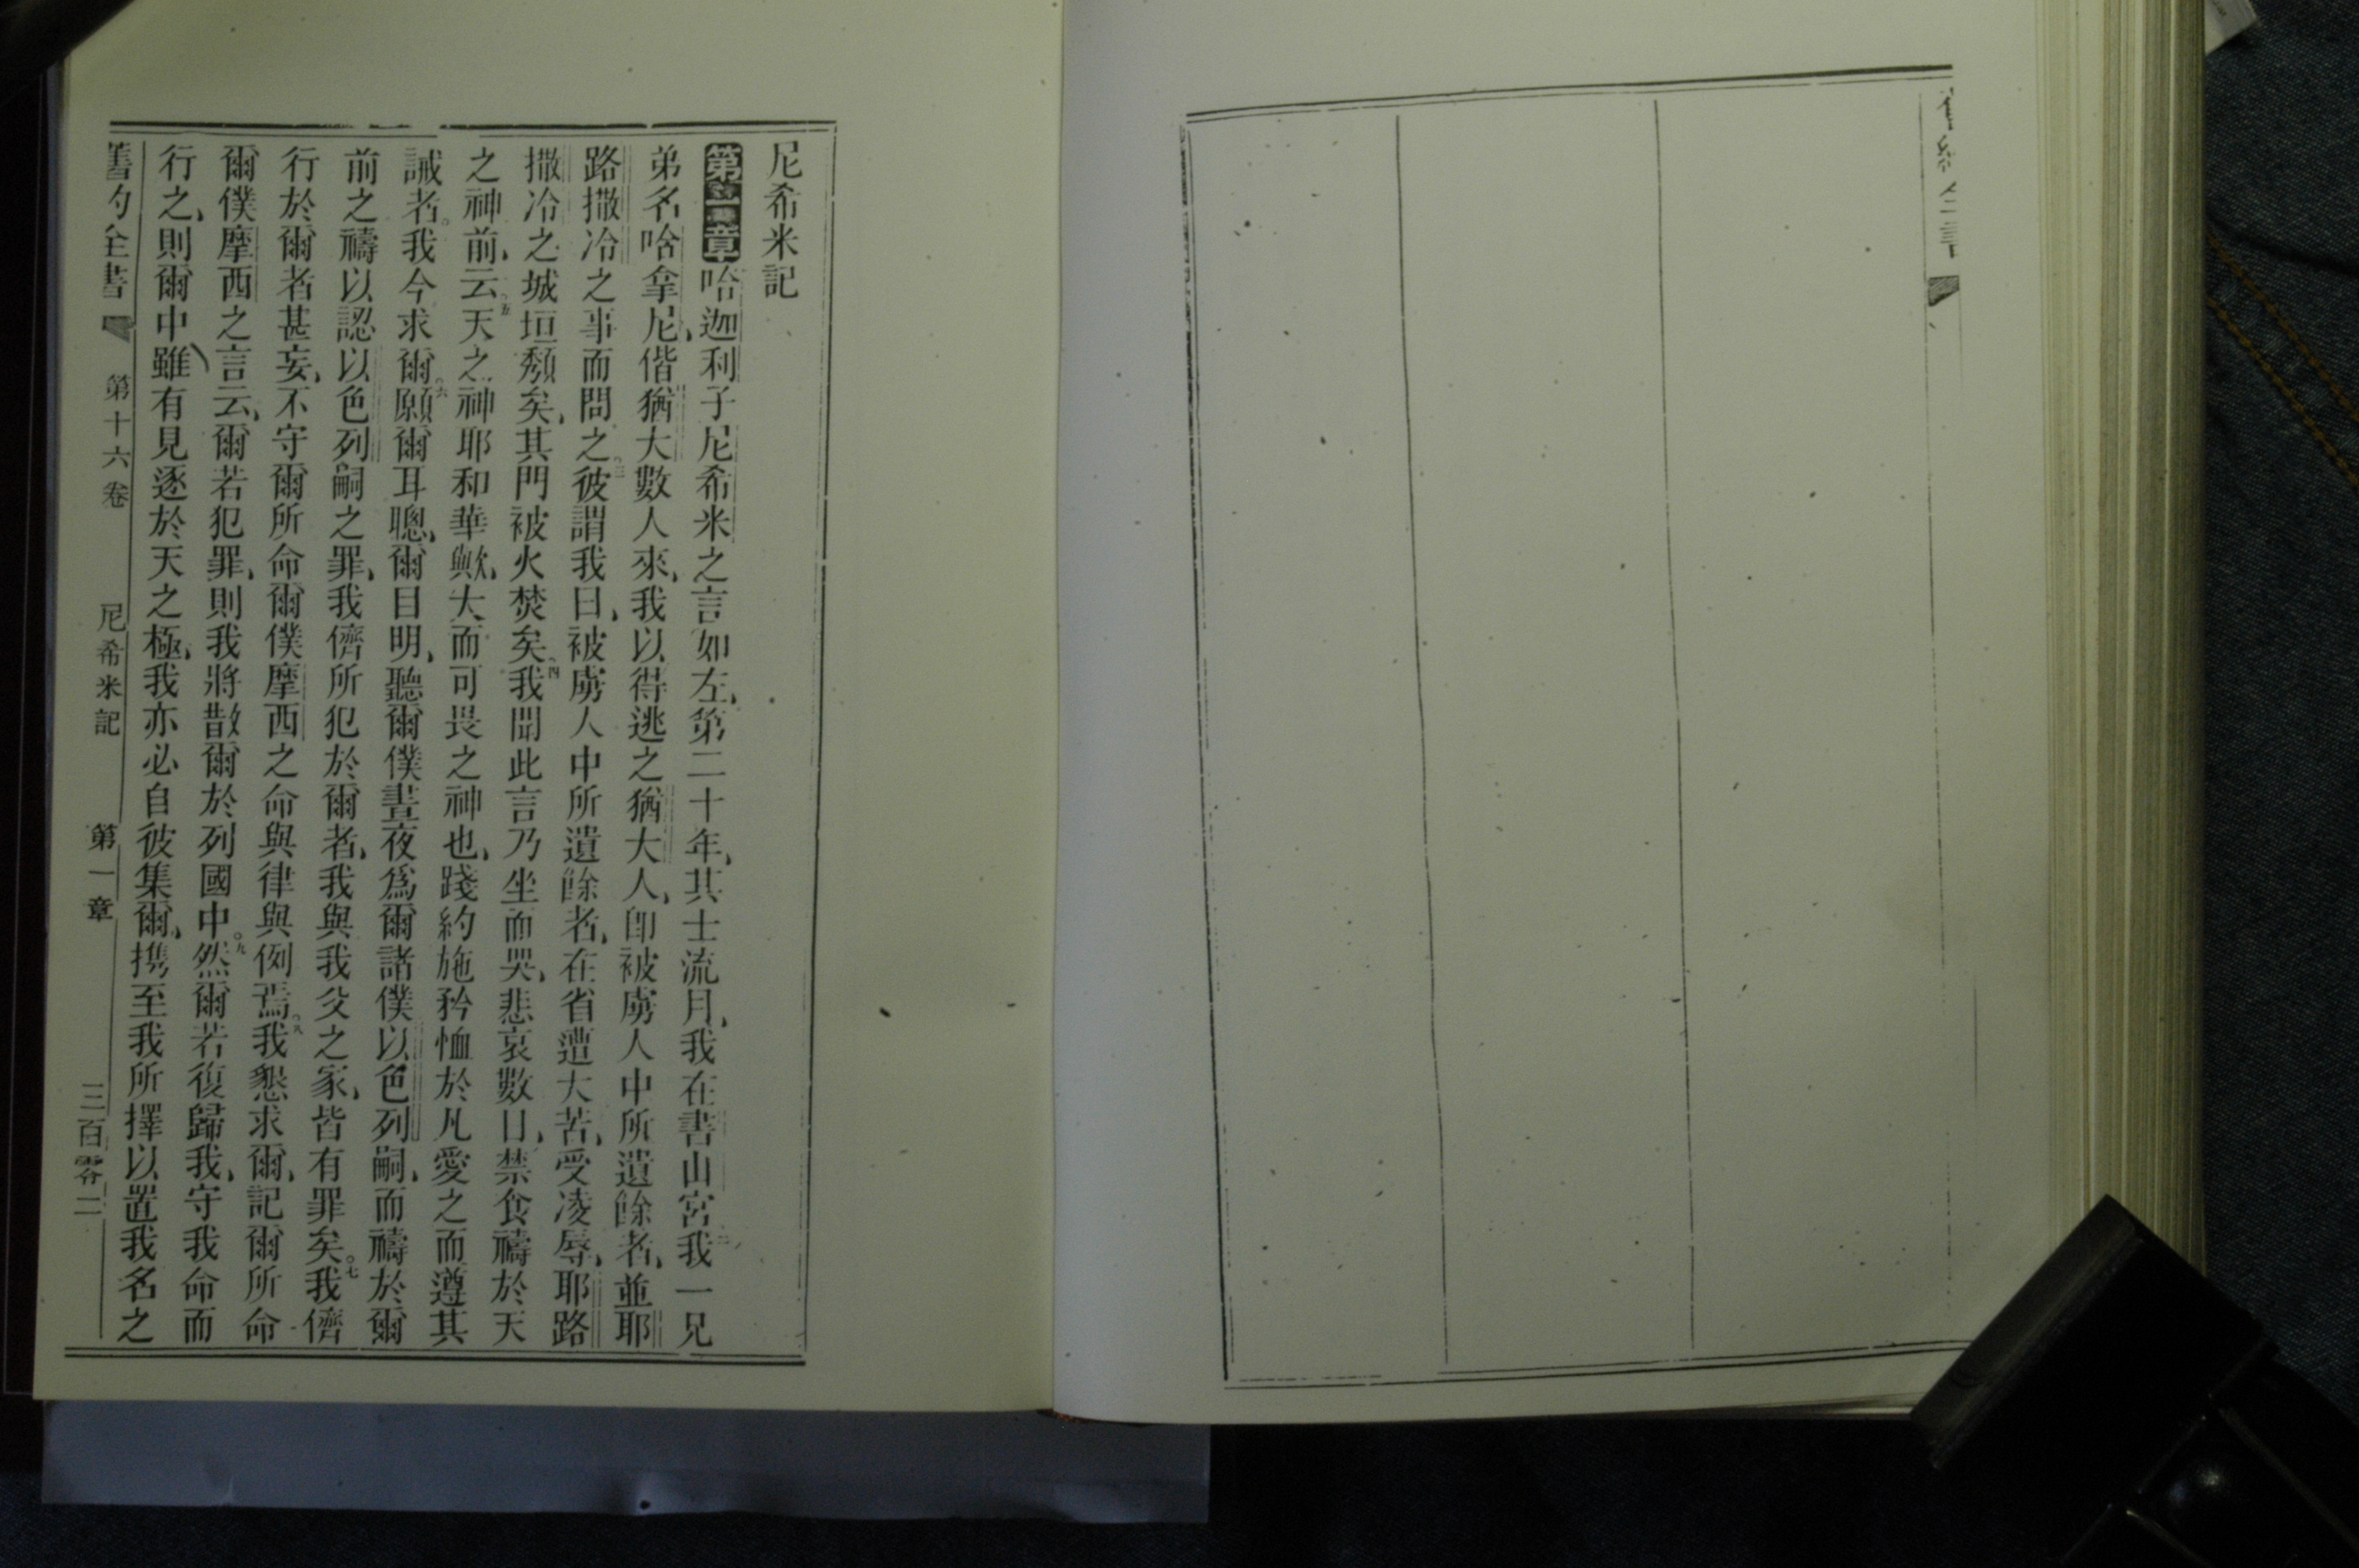 尼希米記
第一章哈迦利子尼希米之言如左、第二十年、其士流月、我在書山宮、○二我一兄
弟名哈拿尼、偕猶大數人來、我以得逃之猶大人、卽被虜人中所遺餘者、並耶
路撒冷之事而問之、○三彼謂我曰、被虜人中所遺餘者、在省遭大苦、受凌辱、耶路
撒冷之城垣頹矣、其門被火焚矣、○四我聞此言乃坐而哭、悲哀數日、禁食禱於天
之神前、云、○五天之神耶和華歟、大而可畏之神也、踐約施矜恤於凡愛之而遵其
誡者。我今求爾、○六願爾耳聰、爾目明、聽爾僕晝夜爲爾諸僕以色列嗣、而禱於爾
前之禱以認以色列嗣之罪、我儕所犯於爾者、我與我父之家、皆有罪矣。○七我儕
行於爾者甚妄、不守爾所命爾僕摩西之命與律與例焉。○八我懇求爾、記爾所命
爾僕摩西之言云、爾若犯罪、則我將散爾於列國中。○九然爾若復歸我、守我命而
行之、則爾中雖有見逐於天之極、我亦必自彼集爾、携至我所擇以置我名之
舊約全書 第十六卷 尼希米記 第一章 三百零二